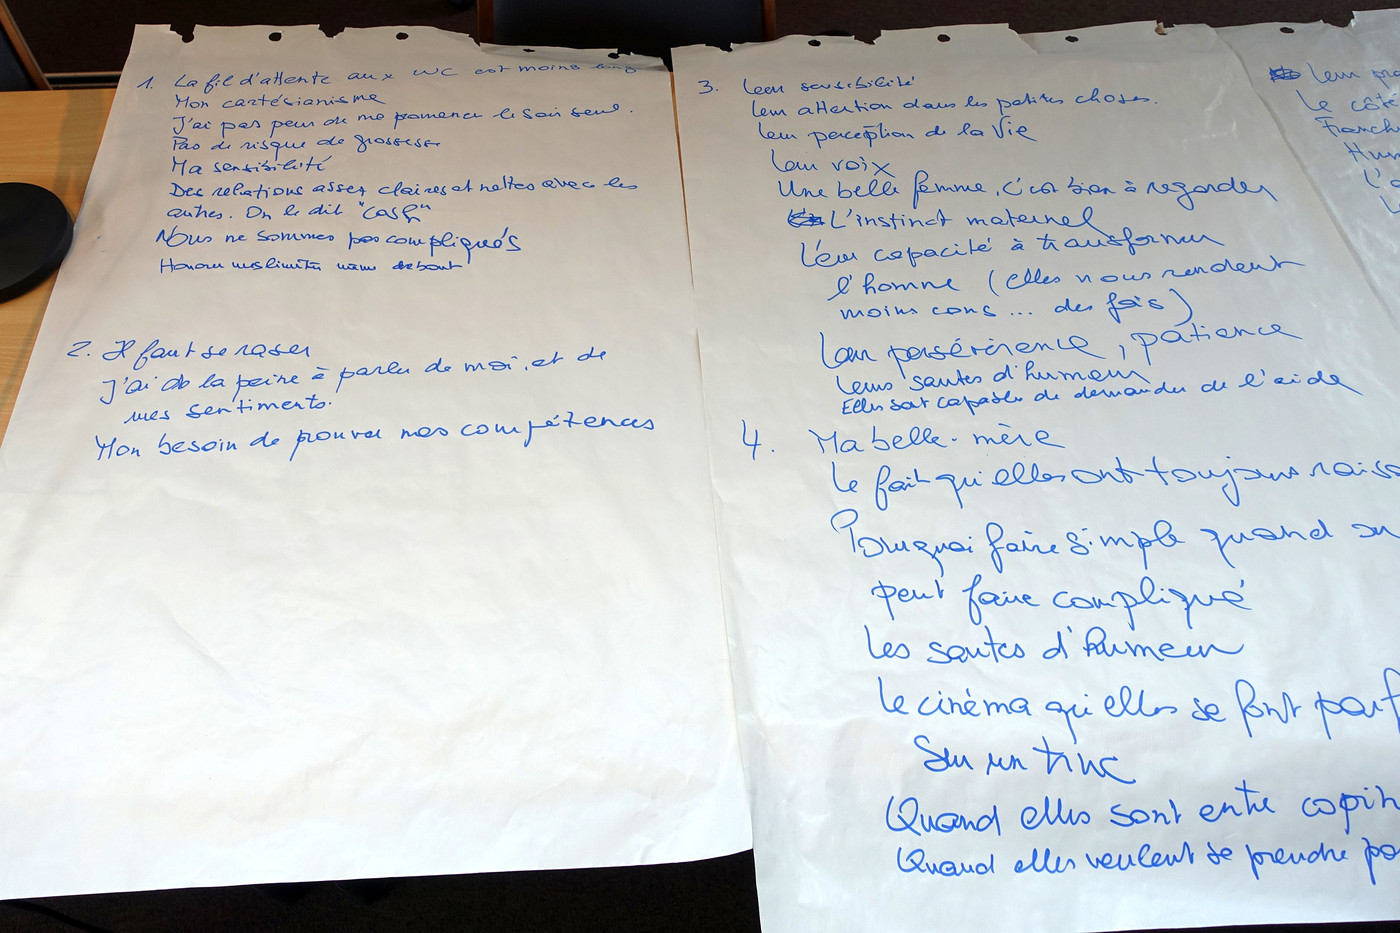 1. La fil d'attente aux WC est moins long
Mon cartésianisme
J'ai pas peur de me promener le soir seul.
Pas de risque de grossesse
Ma sensibilité
Des relations assez claires et nettes avec les
autres. On le dit "cash"
Nous ne sommes pas compliqués
debout
2. Il faut se raser
J'ai de la peine à parler de moi, et de
mes sentiments.
Mon besoin de prouver mes compétences
3. Leur sensibilité
Leur attention dans les petites choses.
Leur perception de la Vie
Leur voix
Une belle femme, c'est bien à regarder
L'instinct maternel
Leur capacité à transformer
l'homme (elles nous rendent
moins cons ... des fois)
Leur persévérence, patience
Leurs sautes d'humeur
Elles sont capables de demander de l'aide
4. Ma belle-mère
Le fait qu'elles ont toujours raiso
Pourquoi faire simple quand on
peut faire compliqué
Les sautes d'humeur
Le cinéma qu'elles se font parf
Sur un truc
Quand elles sont entre copin
Quand elles veulent se prendre po
Leur pro
Le côté
Franch
Hum
L'a